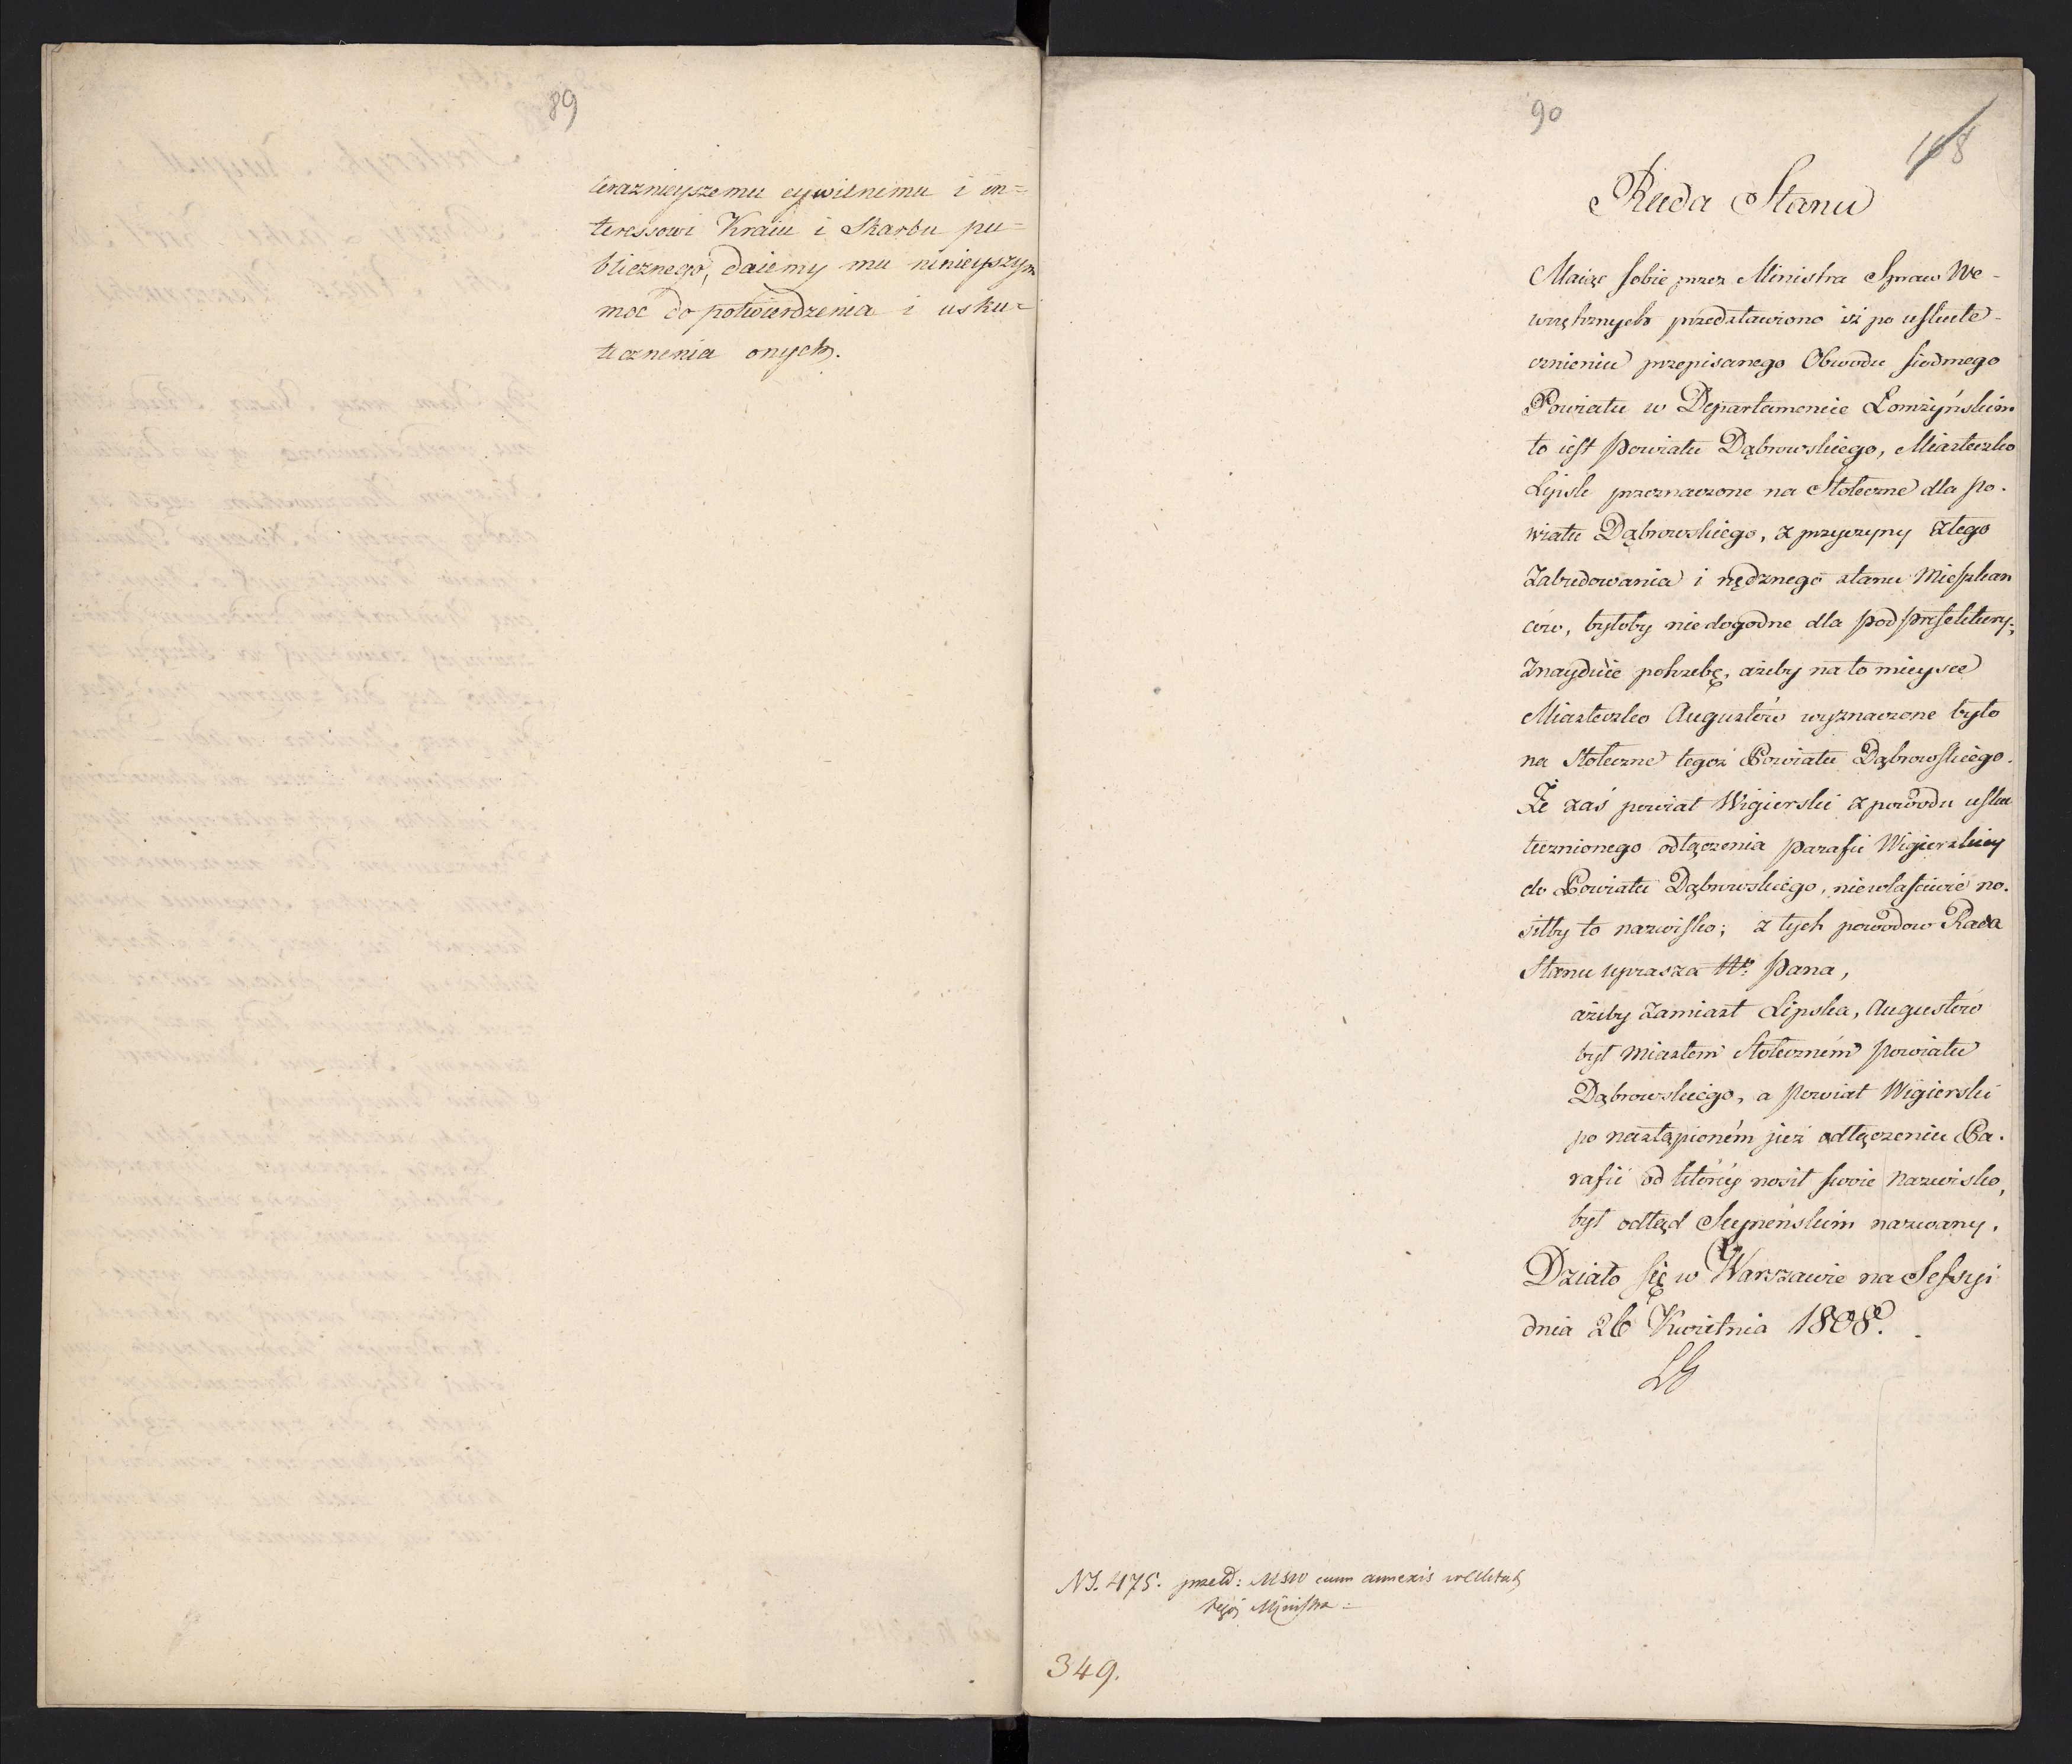 89
teraznieyszemu cywilnemu i in=
teressowi Kraiu i Skarbu pu=
blicznego, daiemy mu ninieyszym
moc do potwierdzenia i usku=
tecznenia onych.
90
168
Rada Stanu
Maiąc sobie przez Ministra Spraw We-
wnętrznych przedstawiono iż po uskute-
cznieniu przepisanego Obwodu siodmego
Powiatu w Departamencie Łomżyńskim
to iest Powiatu Dąbrowskiego, Miasteczko
Lipsk przeznaczone na Stołeczne dla po-
wiatu Dąbrowskiego, z przyczyny złego
Zabudowania i nędznego stanu Mieszkan
ców, byłoby niedogodne dla podprefektury;
Znayduie potrzebę, ażeby na to mieysce
Miasteczko Augustów wyznaczone było
na Stołeczne tegoż Powiatu Dąbrowskiego.
Że zaś powiat Wigierski z powodu usku
tecznionego odłączenia parafii Wigierskiey
do Powiatu Dąbrowskiego, niewłaściwie no-
siłby to nazwisko; z tych powodow Rada
Stanu uprasza W: Pana,
ażeby zamiast Lipska, Augustów
był miastem Stołeczném powiatu
Dąbrowskiego, a powiat Wigierski
po nastąpioném już odłączeniu Pa-
rafii od któréy nosił swoie nazwisko,
był odtąd Seyneńskim nazwany.
Działo się w Warszawie na Sessyi
dnia 26 Kwietnia 1808.
LG
NS. 475. przeds: MSW cum annexis
tegoż Ministra =
349.